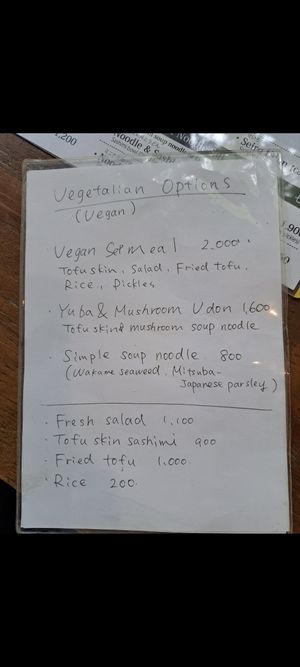 1,200
soup noodle
Noodle & Sashi
Vegetalian Options
(Vegan)
· Vegan Set meal 2,000
Tofu skin, Salad, Fried tofu,
Rice, Pickles
· Yuba & Mushroom Udon 1,600
Tofu skin & mushroom soup noodle
· Simple soup noodle 800
(Wakame seaweed, Mitsuba-
Japanese parsley)
· Fresh salad 1,100
· Tofu skin sashimi 900
· Fried tofu 1,000
· Rice 200